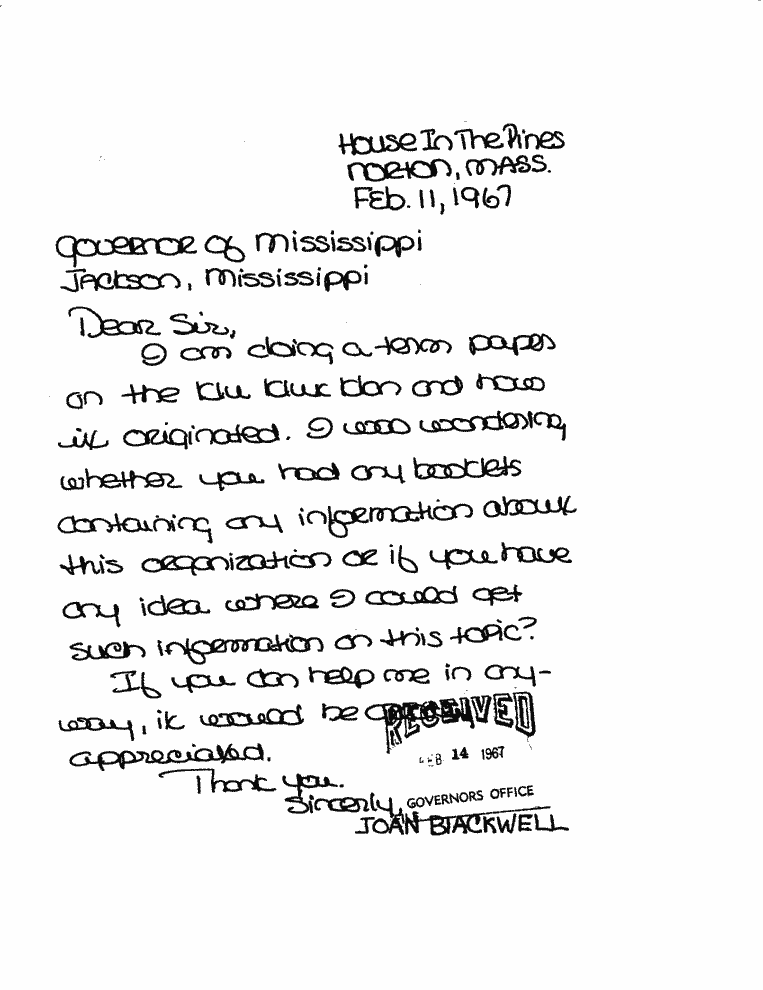 House In The Pines
Norton, Mass.
Feb. 11, 1967
Governor of Mississippi
Jackson, Mississippi
Dear Sir,
I am doing a term paper
on the Klu Klux Klan and how
it originated. I was wondering
whether you had any booklets
containing any information about
this organization or if you have
any idea where I could get
such information on this topic?
If you can help me in any-
way, it would be
RECEIVED
appreciated.
FEB 14 1967
Thank you.
Sincerly,
GOVERNORS OFFICE
JOAN BLACKWELL